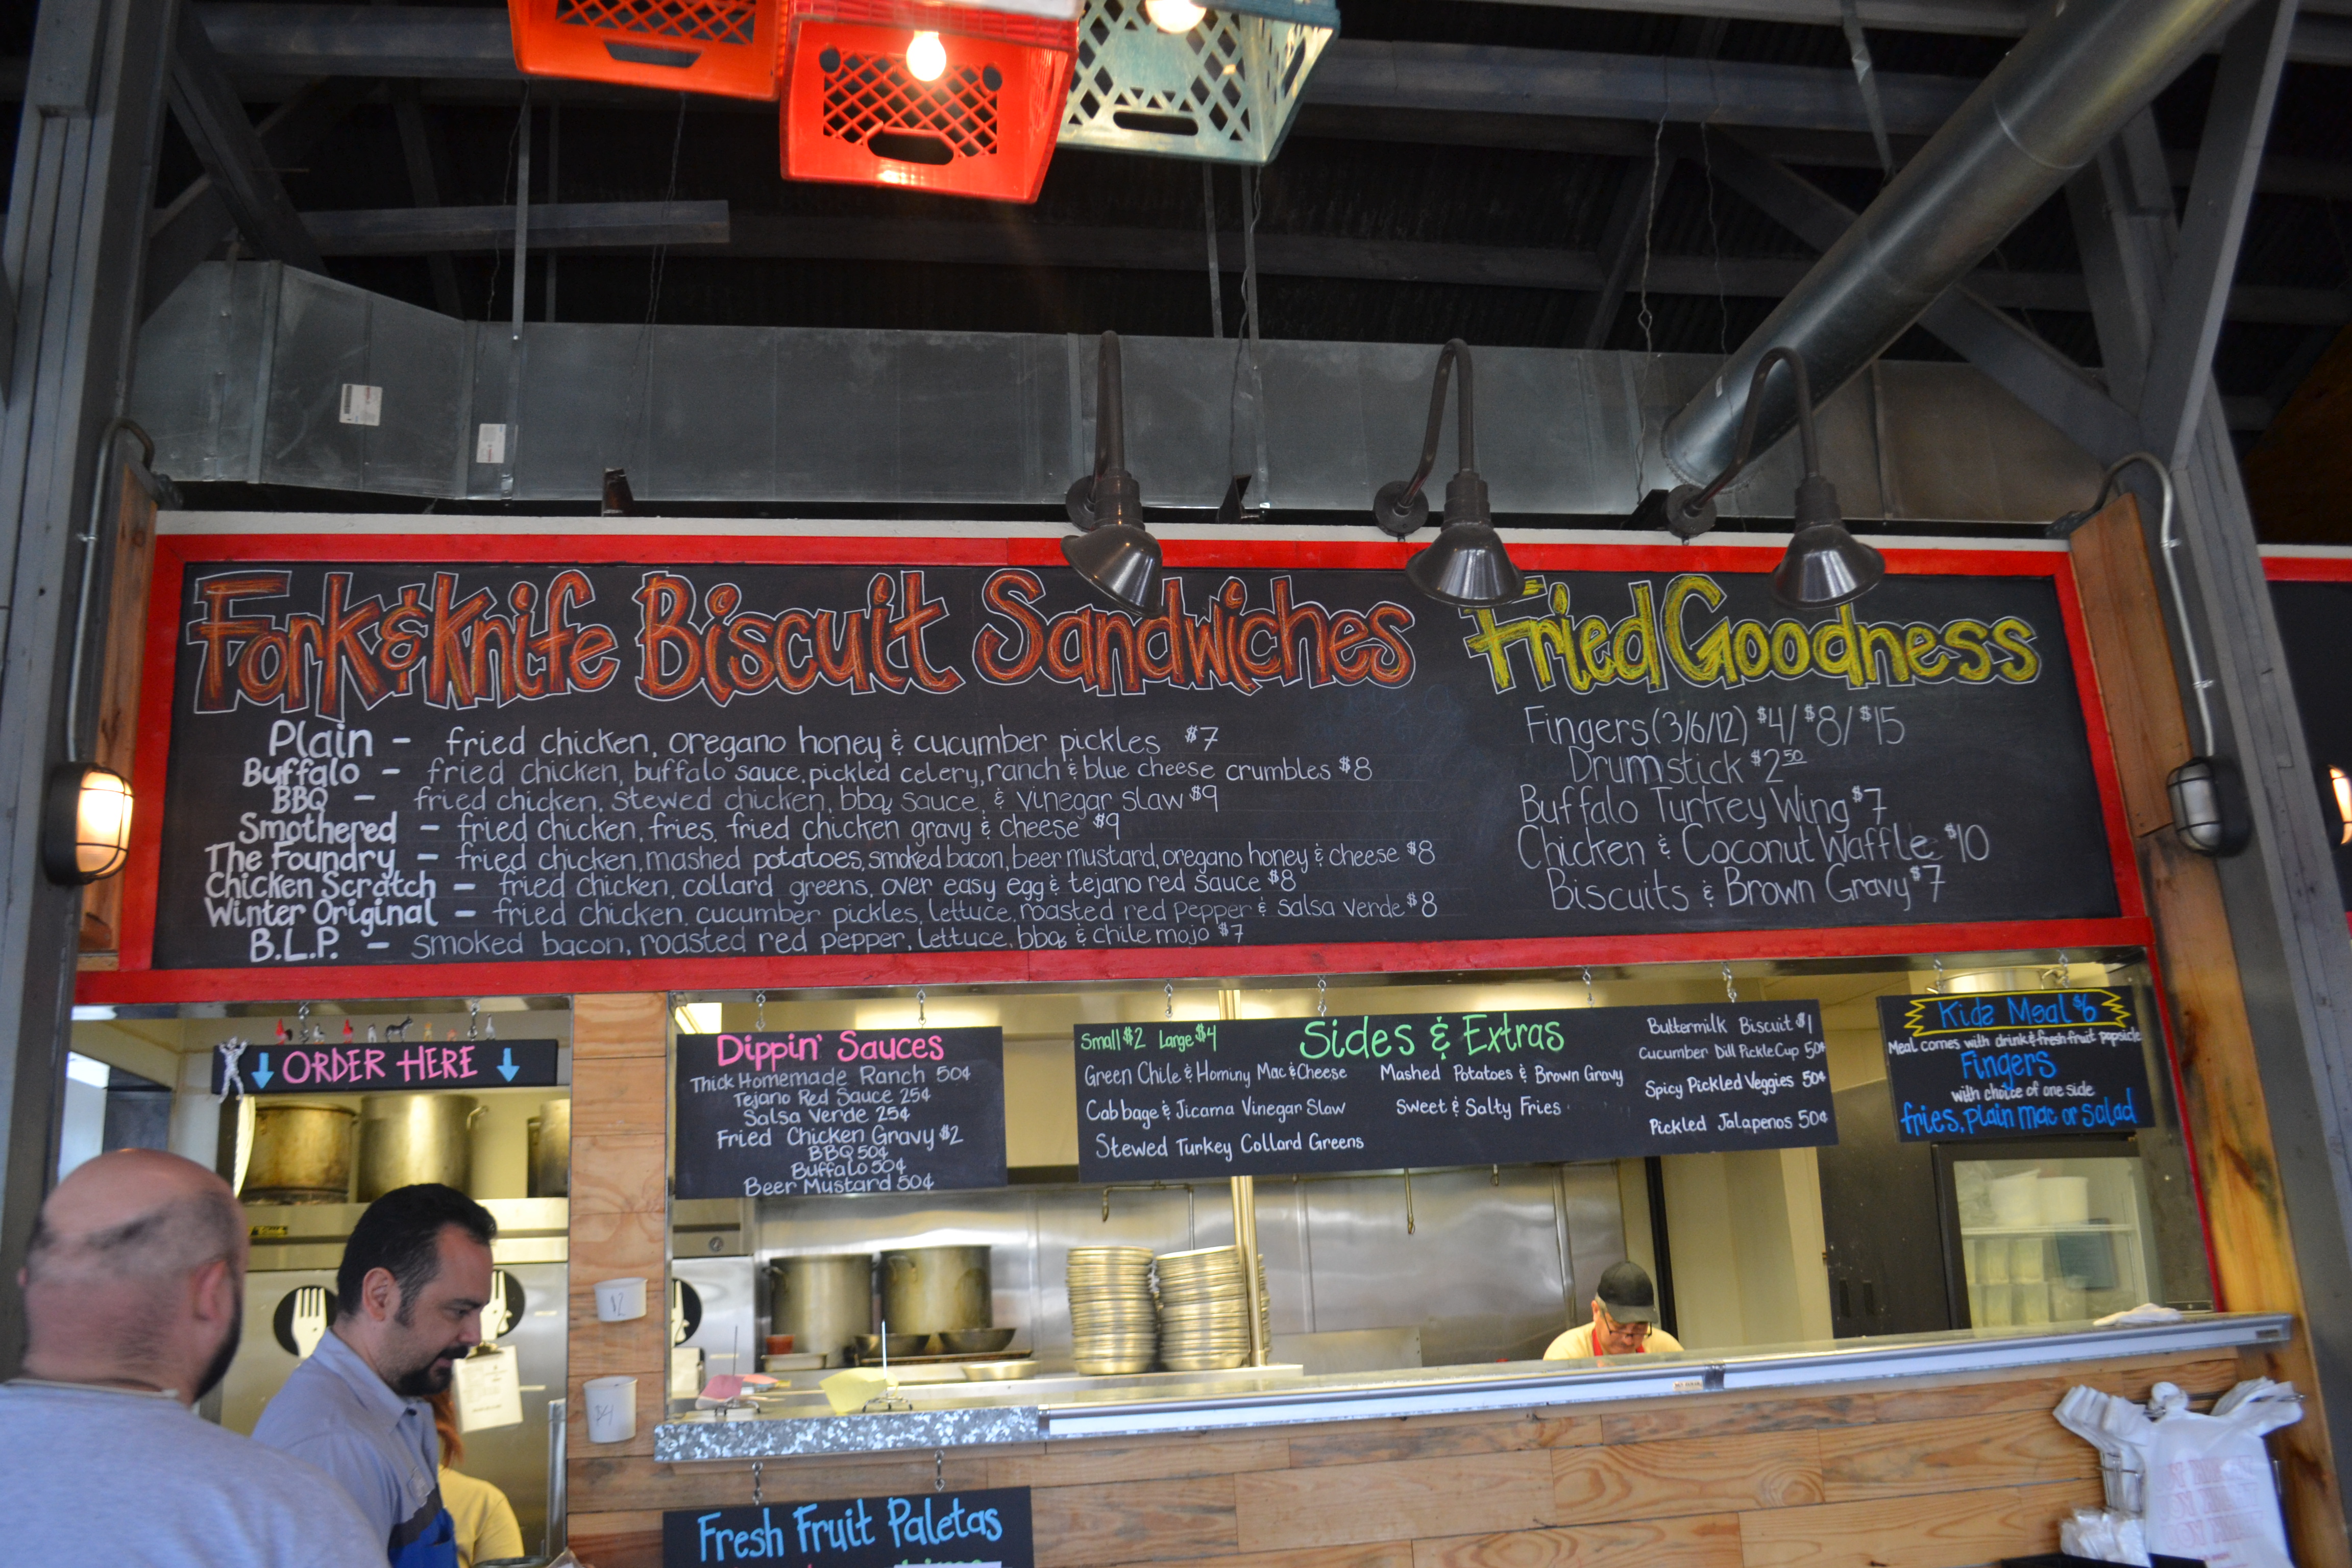 Fork & Knife Biscuit Sandwiches
Plain - fried chicken, oregano honey & cucumber pickles $7
Buffalo - fried chicken, buffalo sauce, pickled celery, ranch & blue cheese crumbles $8
BBQ - fried chicken, stewed chicken, bbq sauce, & vinegar slaw $9
Smothered - fried chicken, fries, fried chicken gravy & cheese $9
The Foundry - fried chicken, mashed potatoes, smoked bacon, beer mustard, oregano honey & cheese $8
Chicken Scratch - fried chicken, collard greens, over easy egg & tejano red sauce $8
Winter Original - fried chicken, cucumber pickles, lettuce, roasted red pepper & salsa verde $8
B.L.P. - smoked bacon, roasted red pepper, lettuce, bbq & chile mojo $7
Fried Goodness
Fingers (3/6/12) $4/$8/$15
Drumstick $2 50
Buffalo Turkey Wing $7
Chicken & Coconut Waffle $10
Biscuits & Brown Gravy $7
ORDER HERE
Dippin' Sauces
Thick Homemade Ranch 50¢
Tejano Red Sauce 25¢
Salsa Verde 25¢
Fried Chicken Gravy $2
BBQ 50¢
Buffalo 50¢
Beer Mustard 50¢
Small $2 Large $4
Sides & Extras
Green Chile & Hominy Mac & Cheese
Cabbage & Jicama Vinegar Slaw
Stewed Turkey Collard Greens
Mashed Potatoes & Brown Gravy
Sweet & Salty Fries
Buttermilk Biscuit $1
Cucumber Dill Pickle Cup 50¢
Spicy Pickled Veggies 50¢
Pickled Jalapenos 50¢
Kids Meal $6
Meal comes with drink & fresh fruit popsicle
Fingers
with choice of one side
fries, plain mac or salad
$2
$4
Fresh Fruit Paletas